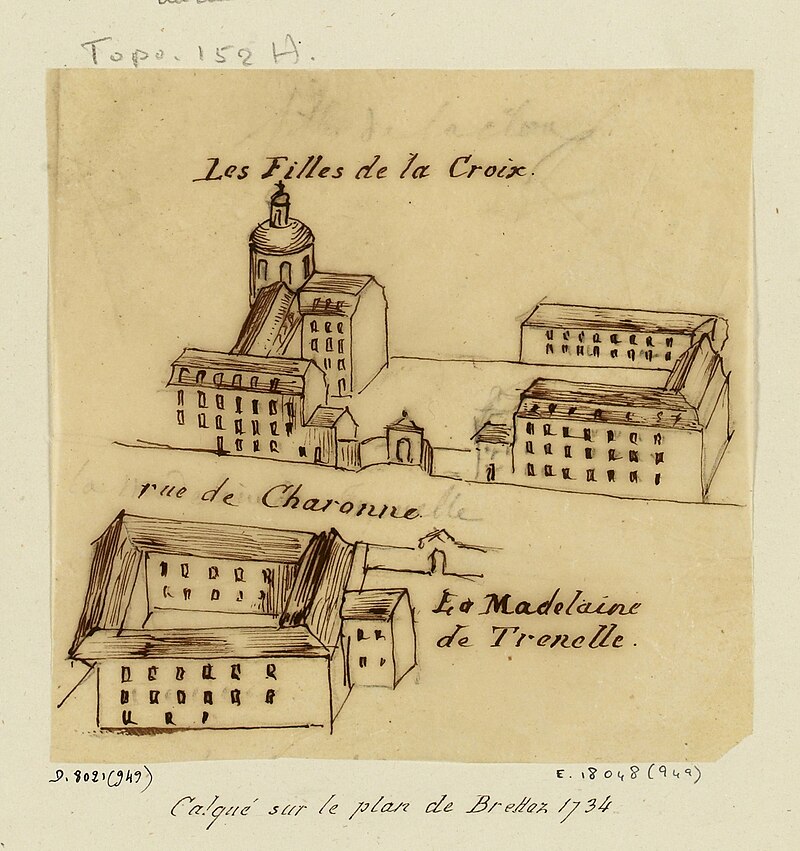 Topo. 152 H.
Les Filles de la Croix.
rue de Charonne
La Madelaine
de Trenelle.
D. 8021 (949)
E. 18048 (949)
Calqué sur le plan de Brettez 1734